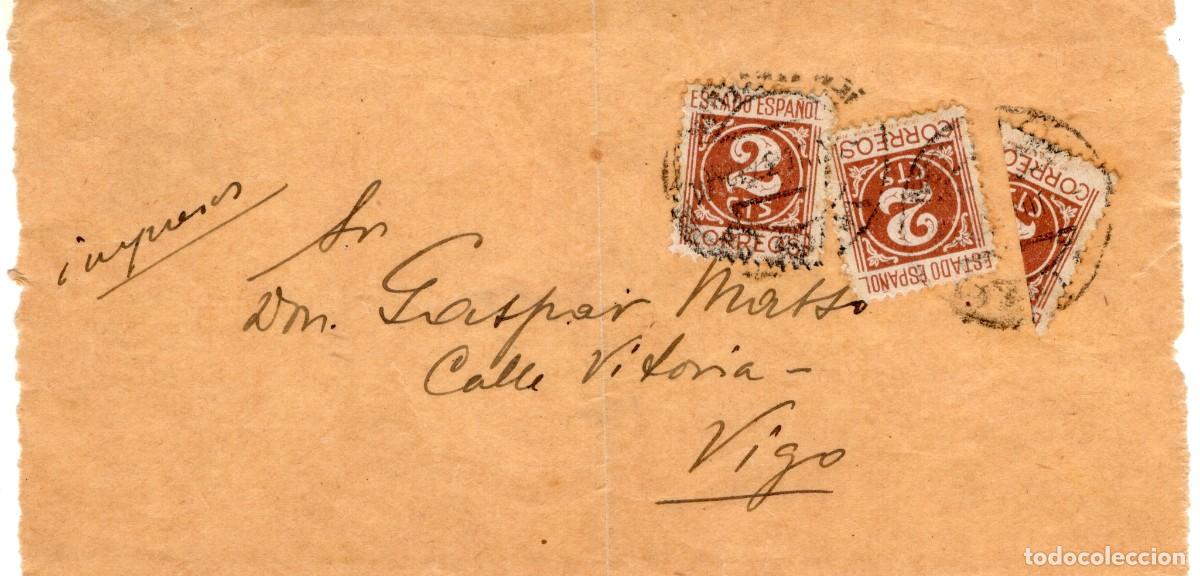 impresos
ESTADO ESPAÑOL
2
CTS
CORREOS
CORREOS
CTS
2
ESTADO ESPAÑOL
CORREOS
CTS
Sr
Don. Gaspar Masso
Calle Vitoria -
Vigo
todocoleccion